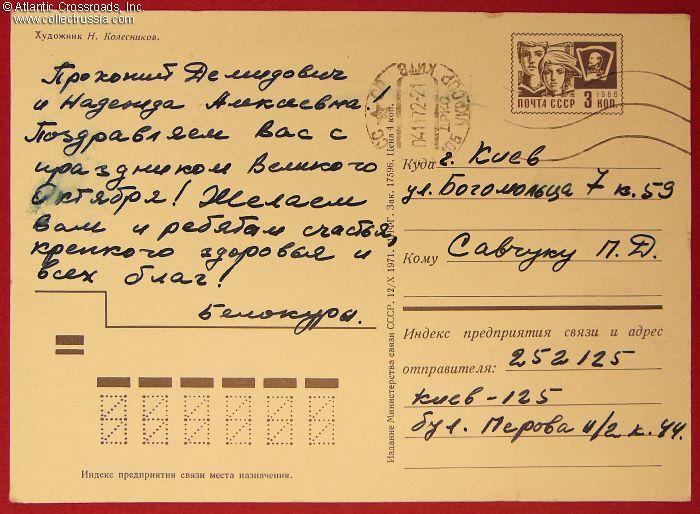 © Atlantic Crossroads, Inc.
www.collectrussia.com
Художник Н. Колесников.
Прокопий Демидович
и Надежда Алексеевна!
Поздравляем вас с
праздником Великого
Октября! Желаем
вам и ребятам счастья,
крепкого здоровья и
всех благ!
Белокуры.
Индекс предприятия связи места назначения.
Издание Министерства связи СССР. 12/X 1971. Зак. 17596. Цена 4 коп.
ПОЧТА СССР 3 1966 КОП.
Куда г. Киев
ул. Богомольца 7 к. 59
Кому Савчуку П. Д.
Индекс предприятия связи и адрес
отправителя: 252125
Киев-125
бул. Перова 11/2 к. 44.